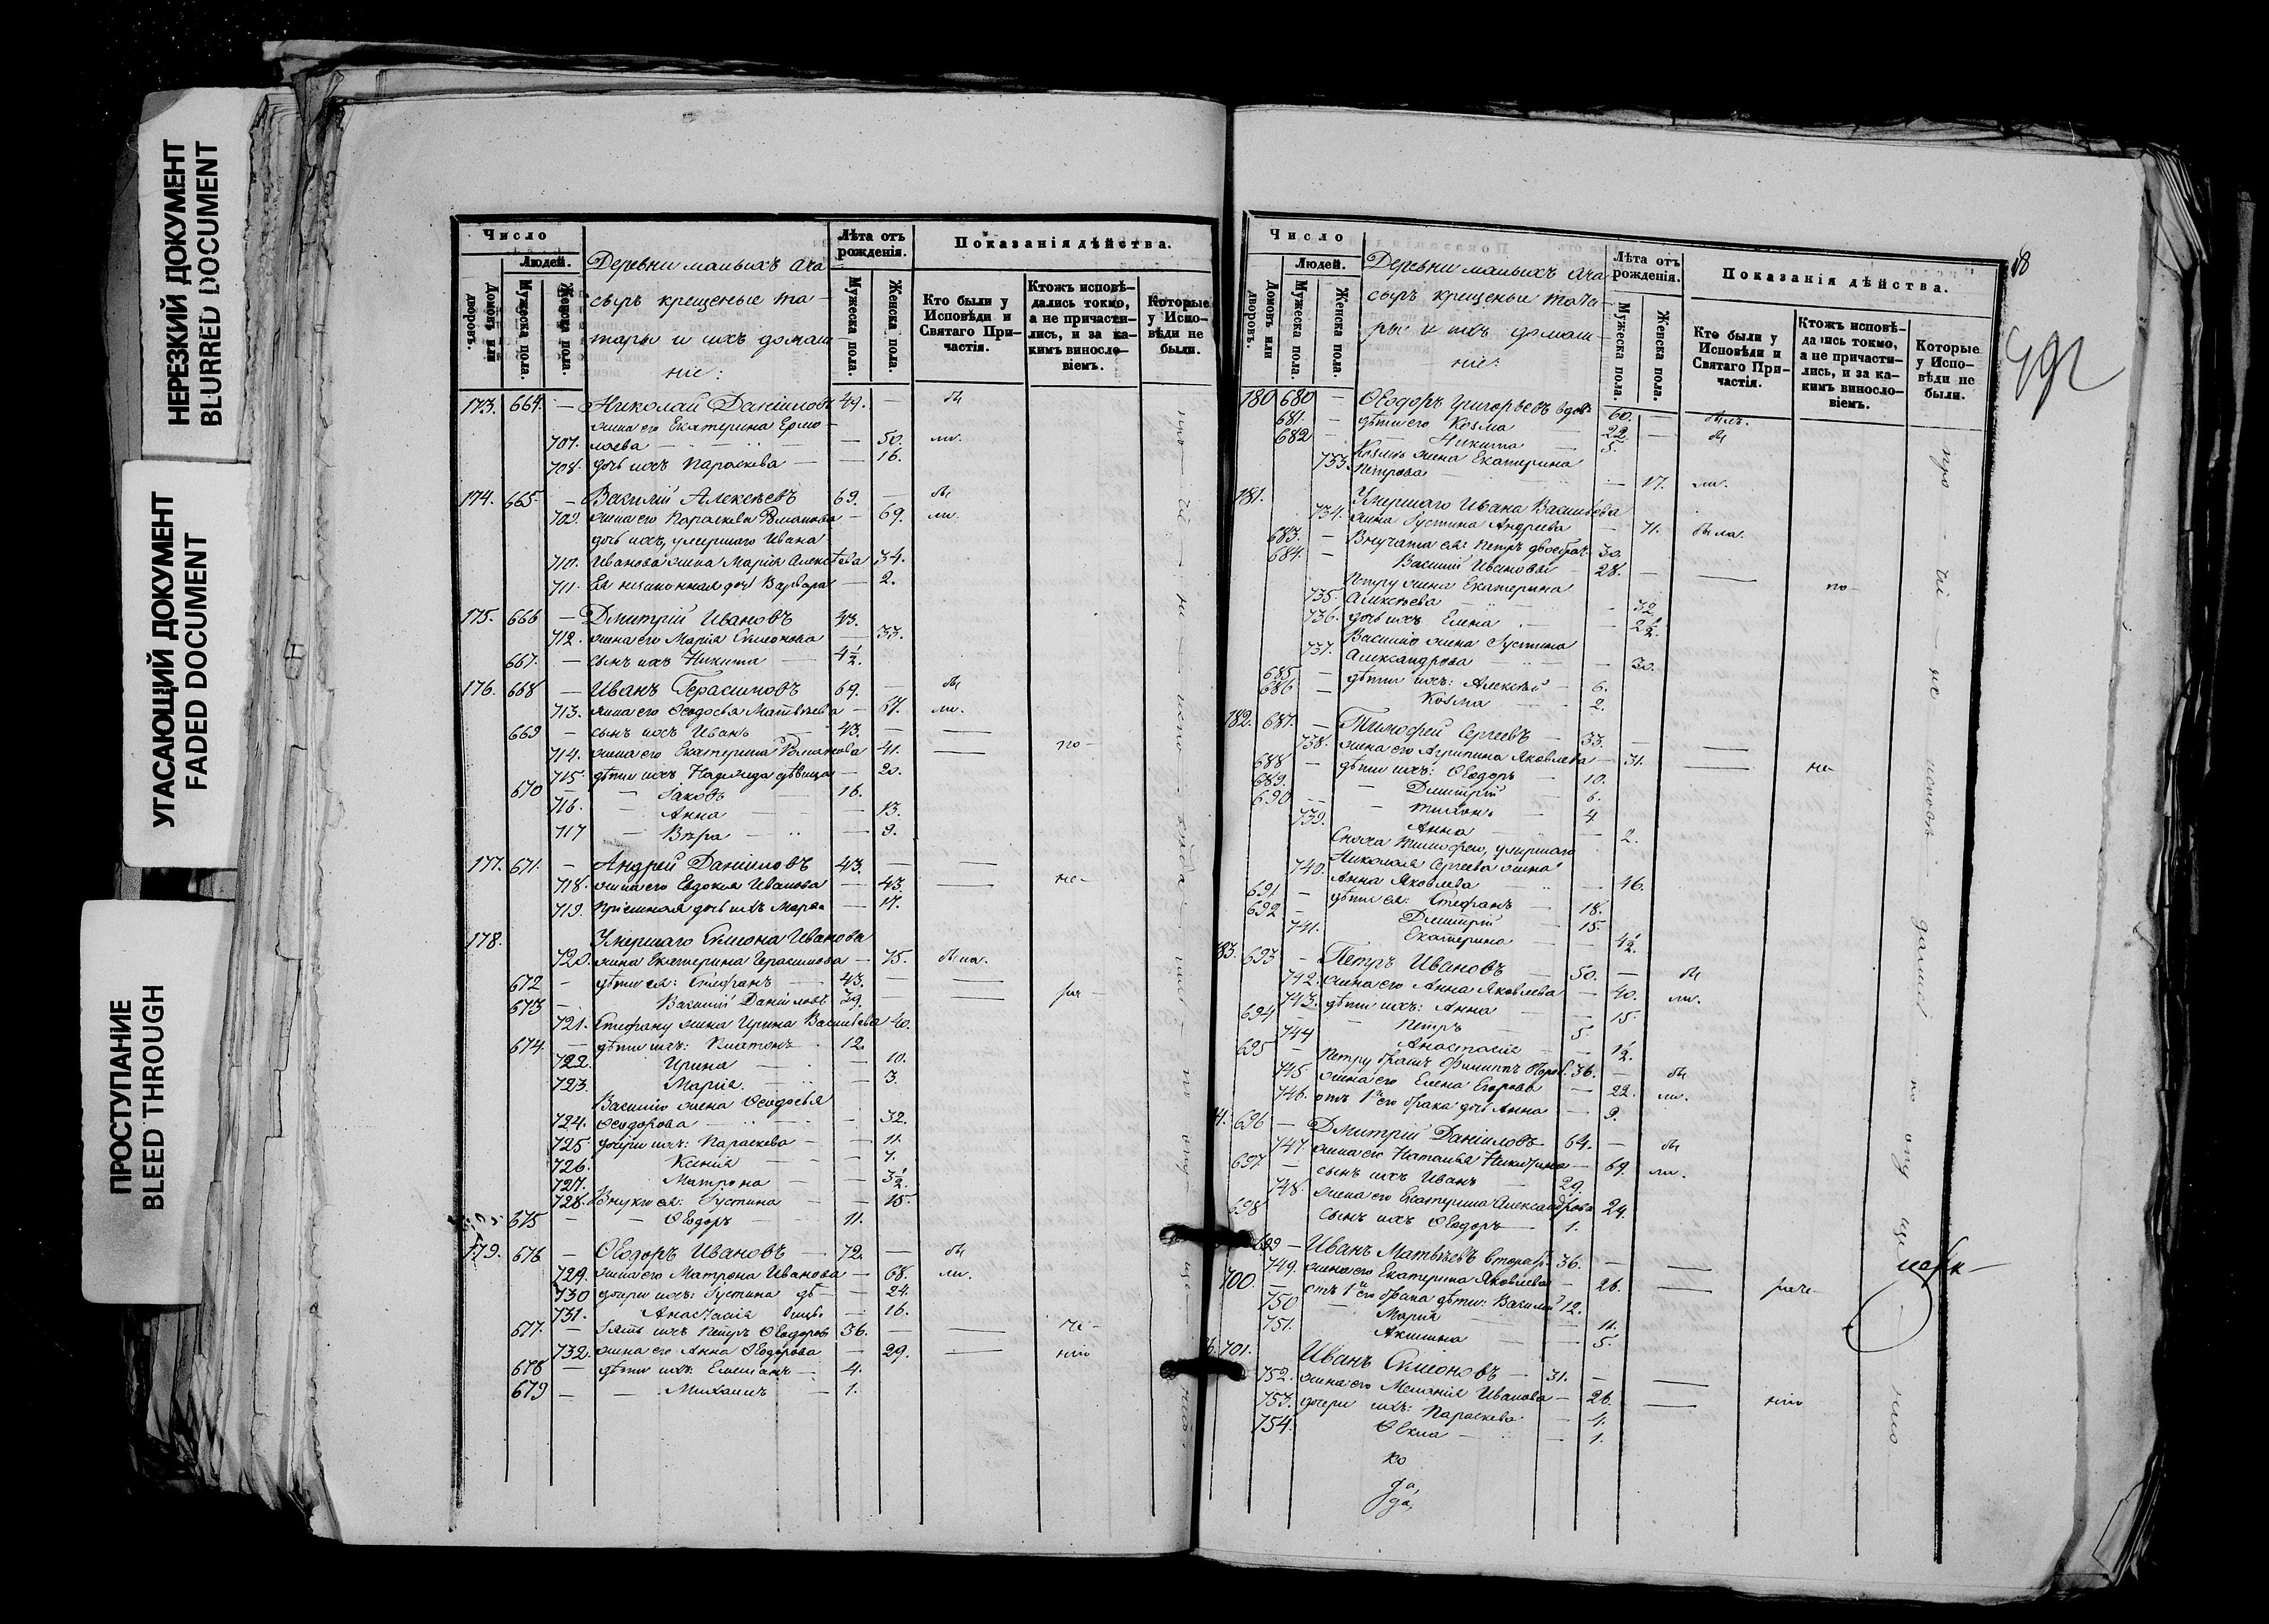 НЕРЕЗКИЙ ДОКУМЕНТ
BLURRED DOCUMENT
УГАСАЮЩИЙ ДОКУМЕНТ
FADED DOCUMENT
ПРОСТУПАНИЕ
BLEED THROUGH
Число
Людей.
Домовъ или дворовъ.
Мужеска пола.
Женска пола.
Деревни малыхъ Ача
сыръ крещеные та-
тары и ихъ домаш
ніе:
Лѣта отъ рожденія.
Мужеска пола.
Женска пола.
Показанія дѣйства.
Кто были у Исповѣди и Святаго При-частія.
Ктожъ исповѣ-дались токмо, а не причасти-лись, и за ка-кимъ виносло-віемъ.
Которые у Испо-вѣди не были.
173. 664. — Николай Даніиловъ 49. — бы
жена его Екатерина Ермо-
707. лаева — 50. ли.
708. дочь ихъ Параскева — — 16.
174. 665. — Василій Алексѣевъ 69. — бы
709. жена его Параскева Романова — 69. ли.
дочь ихъ, умершаго Ивана
710. Иванова жена Марія Алексѣева 34.
711. Ея незаконная дочь Варвара — 2.
175. 666 — Дмитрій Ивановъ 43.
712. жена его Марія Симеонова — 33.
667. — сынъ ихъ Никита — 4½.
176. 668 — Иванъ Герасимовъ 69. — бы
713. жена его Ѳеодосья Матвѣева — 67. ли.
669 — сынъ ихъ Иванъ — 43. — —
714. жена его Екатерина Романова 41. — по-
715. дѣти ихъ Надежда дѣвица — 20.
670 — — Іаковъ 16.
716. — Анна — — 13.
717 — Вѣра — — 9.
177. 671. — Андрей Даніиловъ 43. — —
718. жена его Евдокія Иванова — 43. — не-
719. Пріемная дочь ихъ Марѳа — 17.
178. Умершаго Симеона Иванова
720. жена Екатерина Герасимова — 75. была.
672 — дѣти ея: Стефанъ — 43. — —
673 — Василій Даніиловъ 39. — — ра-
721. Стефану жена Ирина Васильева 40.
674. — дѣти ихъ: Платонъ 12.
722. Ирина — — 10.
723. Марія — — 3.
Василію жена Ѳеодосья
724. Ѳеодорова — — 32.
725. дочери ихъ: Параскева — — 11.
726. Ксенія — — 7.
727. Матрона — — 3½.
728. Внуки ея: Густина — — 15.
675 — — Ѳеодоръ — 11.
179. 676 — Ѳеодоръ Ивановъ — 72. — бы
729. жена его Матрона Иванова — 68. ли.
730 дочери ихъ: Густина дѣ- — 24.
731. Анастасія вицы — 16.
677. — Зять ихъ Петръ Ѳеодоров 36. — — че-
732. жена его Анна Ѳеодорова — 29. — нію
678 — дѣти ихъ: Емеліанъ — 4.
679 — — Михаилъ — 1.
Число
Людей.
Домовъ или дворовъ.
Мужеска пола.
Женска пола.
Деревни малыхъ Ача-
сыръ крещеные тата-
ры и ихъ домаш-
ніе:
Лѣта отъ рожденія.
Мужеска пола.
Женска пола.
Показанія дѣйства.
Кто были у Исповѣди и Святаго При-частія.
Ктожъ исповѣ-дались токмо, а не причасти-лись, и за ка-кимъ виносло-віемъ.
Которые у Испо-вѣди не были.
180 680 — Ѳеодоръ Григорьевъ вдов. 60. — былъ.
681. — дѣти его Козма — 22. — бы
682 — — Никита — 5.
Козмѣ жена Екатерина
733. Петрова — 17. ли.
181. Умершаго Ивана Васильева
734. жена Густина Андреева — 71. была.
683. — Внучата ея: Петръ двоебрач. 30.
684. — Василій Ивановы — 28. — — по-
Петру жена Екатерина
735. Алексѣева — — 32.
736. дочь ихъ Елена — — 2½.
Василію жена Густина
737. Александрова — — 30.
685 — дѣти ихъ: Алексѣй — 6.
686 — Козма — 2.
182. 687. — Тимофей Сергеевъ — 33. —
738. жена его Агрипина Яковлева — 31. — не-
688 — дѣти ихъ: Ѳеодоръ — 10.
689. — Дмитрій — 6.
690 — Тихонъ — 4
739. Анна — 2.
Сноха Тимофею, умершаго
Николая Сергеева жена
740. Анна Яковлева — — 46.
691 — дѣти ея: Стефанъ — 18.
692 — Дмитрій — 15.
741. Екатерина — — 4½.
83. 693 — Петръ Ивановъ — 50. — бы
742. жена его Анна Яковлева — 40. ли.
743. дѣти ихъ: Анна — — 15.
694 — — Петръ — 5.
744 Анастасія — — 1½.
695 — Петру братъ Филиппъ 36. — бы
745 жена его Елена Егорова — 22. ли.
746. отъ 1го его брака дочь Анна — 9.
4. 696 — Дмитрій Даніиловъ — 64. — бы
747. жена его Наталья Никитина — 69. ли.
697. — сынъ ихъ Иванъ — 29.
748. жена его Екатерина Александрова 29.
698 сынъ ихъ Ѳеодоръ — 1.
699 — Иванъ Матвѣевъ вторбр. 36. — —
749. жена его Екатерина Яковлева — 26. — раче-
700. — отъ 1го его брака дѣти: Василій 12.
750 — Марія — — 11.
751. Акилина — — 5.
701. Иванъ Симеоновъ — 31. — —
752. жена его Меланія Иванова — 26. — нію
753. дочери ихъ: Параскева — 4.
754. Ѳекла — — 1.
ко
да,
да,